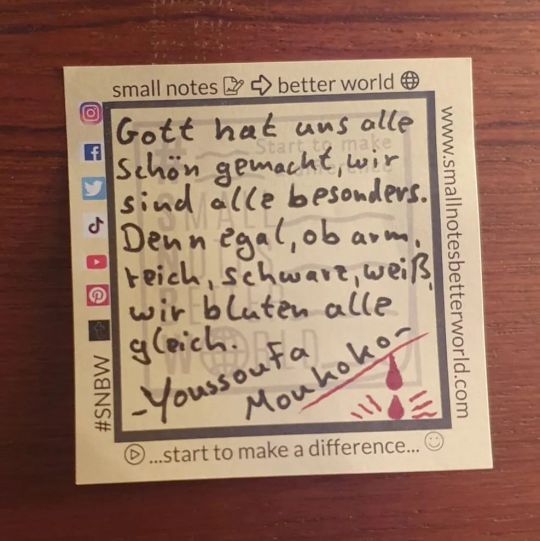 small notes better world
Gott hat uns alle
schön gemacht, wir
sind alle besonders.
Denn egal, ob arm,
reich, schwarz, weiß,
wir bluten alle
gleich.
-Youssoufa
Moukoko-
...start to make a difference...
#SNBW
www.smallnotesbetterworld.com
Start to make